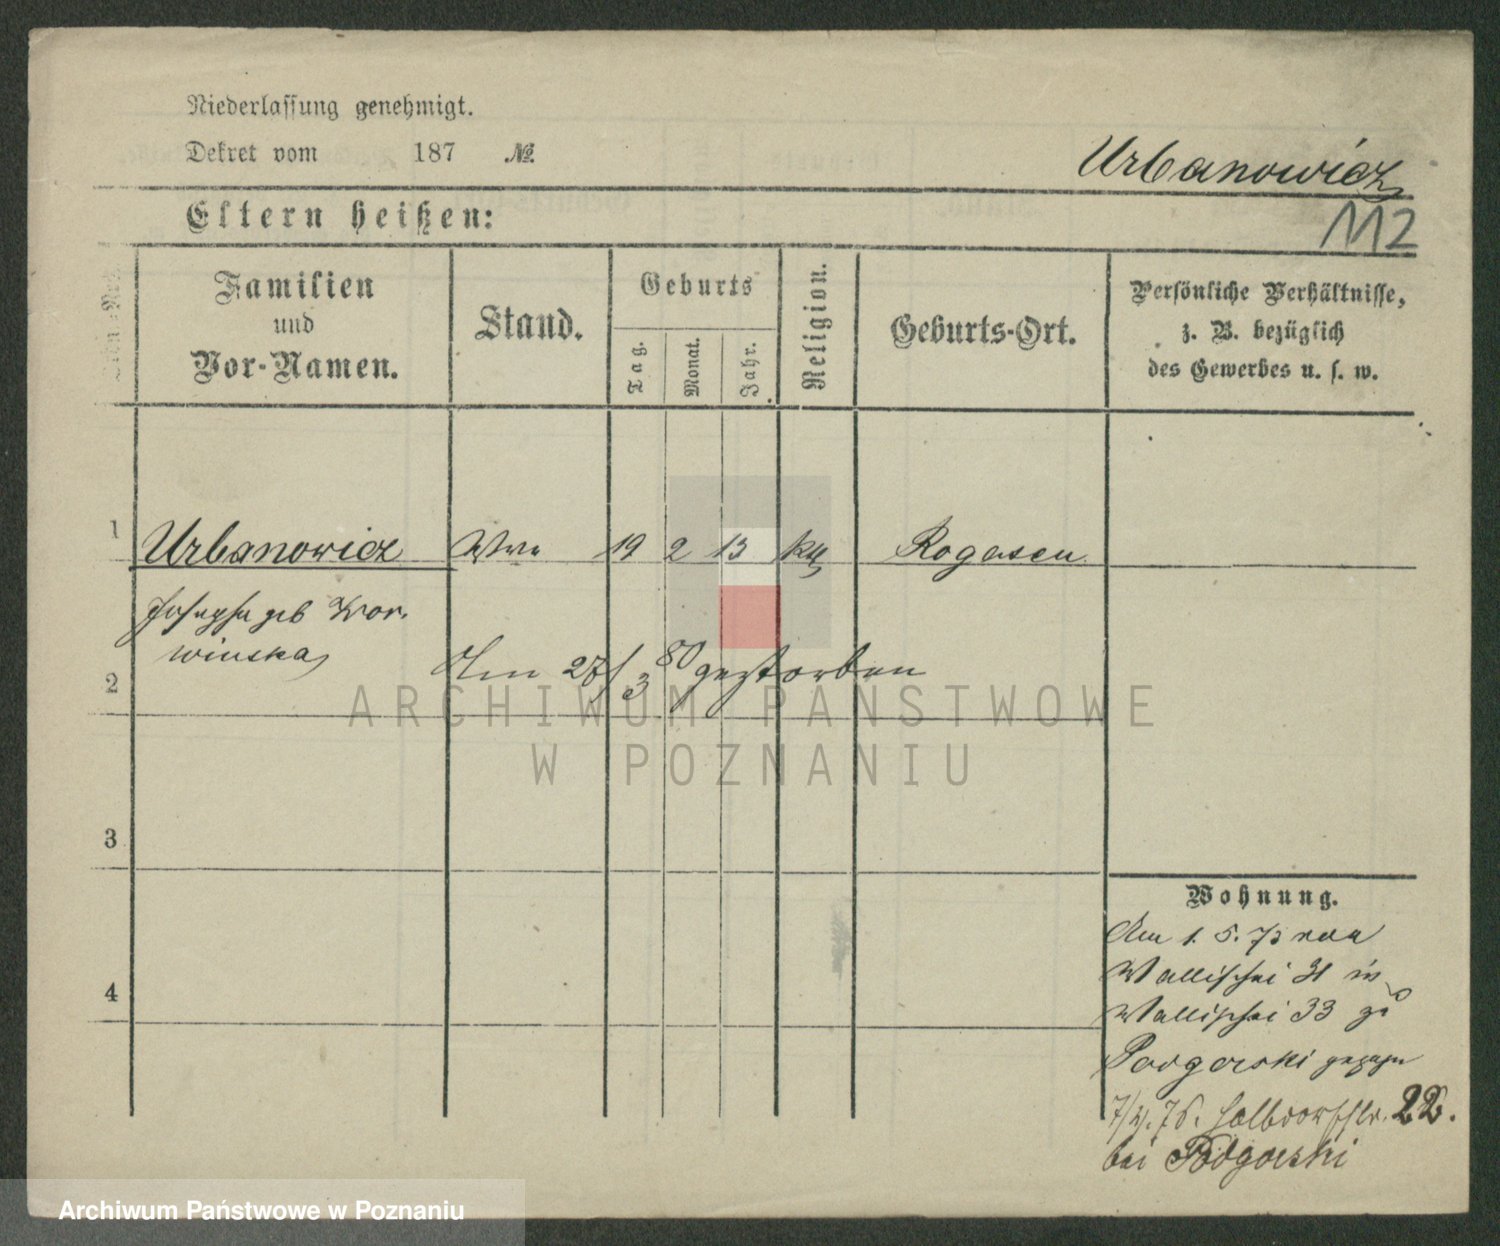 Niederlassung genehmigt.
Dekret vom 187 №
Urbanowicz
112
Eltern heißen:
Familien
und
Vor-Namen.
Stand.
Geburts
Tag.
Monat.
Jahr.
Religion.
Geburts-Ort.
Persönliche Verhältnisse,
z. B. bezüglich
des Gewerbes u. s. w.
1
Urbanowicz Wwe 19 2 13 kth Rogasen
Josepha geb Wor-
winska
2
Am 27/3 80 gestorben
ARCHIWUM PAŃSTWOWE
W POZNANIU
3
4
Wohnung.
Am 1. 5. 73 von
Wallischei 31 in
Wallischei 33 zu
Podgorski gezogen
76. Halbdorfstr. 22.
bei Podgorski
Archiwum Państwowe w Poznaniu